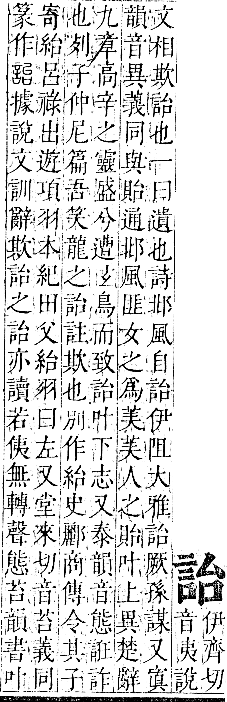 詒
伊齊切
音夷說
文相欺詒也一曰遺也詩邶風自詒伊阻大雅詒厥孫謀又寘
韻音異義同與貽通邶風匪女之爲美美人之貽叶上異楚辭
九章高辛之靈盛兮遭玄鳥而致詒叶下志又泰韻音態誑詐
也列子仲尼篇吾笑龍之詒註欺也別作紿史酈商傳令其子
寄紿呂祿出遊項羽本紀田父紿羽曰左又堂來切音苔義同
篆作據說文訓辭欺詒之詒亦讀若侇無轉聲態苔韻書叶